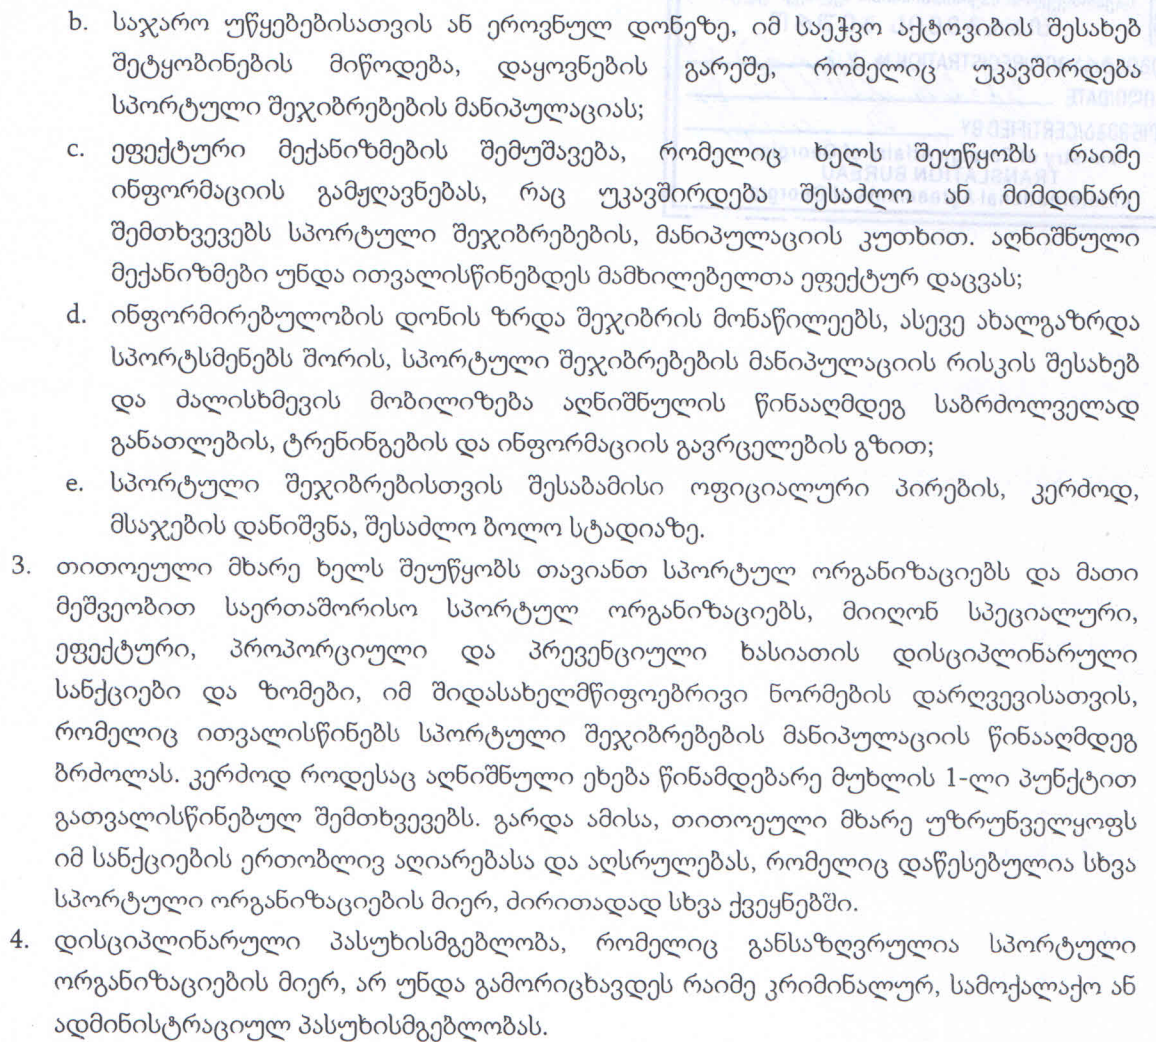 b. საჯარო უწყებებისათვის ან ეროვნულ დონეზე, იმ საეჭვო აქტოვიბის შესახებ
შეტყობინების მიწოდება, დაყოვნების გარეშე, რომელიც უკავშირდება
სპორტული შეჯიბრებების მანიპულაციას;
c. ეფექტური მექანიზმების შემუშავება, რომელიც ხელს შეუწყობს რაიმე
ინფორმაციის გამჟღავნებას, რაც უკავშირდება შესაძლო ან მიმდინარე
შემთხვევებს სპორტული შეჯიბრებების, მანიპულაციის კუთხით. აღნიშნული
მექანიზმები უნდა ითვალისწინებდეს მამხილებელთა ეფექტურ დაცვას;
d. ინფორმირებულობის დონის ზრდა შეჯიბრის მონაწილეებს, ასევე ახალგაზრდა
სპორტსმენებს შორის, სპორტული შეჯიბრებების მანიპულაციის რისკის შესახებ
და ძალისხმევის მობილიზება აღნიშნულის წინააღმდეგ საბრძოლველად
განათლების, ტრენინგების და ინფორმაციის გავრცელების გზით;
e. სპორტული შეჯიბრებისთვის შესაბამისი ოფიციალური პირების, კერძოდ,
მსაჯების დანიშვნა, შესაძლო ბოლო სტადიაზე.
3. თითოეული მხარე ხელს შეუწყობს თავიანთ სპორტულ ორგანიზაციებს და მათი
მეშვეობით საერთაშორისო სპორტულ ორგანიზაციებს, მიიღონ სპეციალური,
ეფექტური, პროპორციული და პრევენციული ხასიათის დისციპლინარული
სანქციები და ზომები, იმ შიდასახელმწიფოებრივი ნორმების დარღვევისათვის,
რომელიც ითვალისწინებს სპორტული შეჯიბრებების მანიპულაციის წინააღმდეგ
ბრძოლას. კერძოდ როდესაც აღნიშნული ეხება წინამდებარე მუხლის 1-ლი პუნქტით
გათვალისწინებულ შემთხვევებს. გარდა ამისა, თითოეული მხარე უზრუნველყოფს
იმ სანქციების ერთობლივ აღიარებასა და აღსრულებას, რომელიც დაწესებულია სხვა
სპორტული ორგანიზაციების მიერ, ძირითადად სხვა ქვეყნებში.
4. დისციპლინარული პასუხისმგებლობა, რომელიც განსაზღვრულია სპორტული
ორგანიზაციების მიერ, არ უნდა გამორიცხავდეს რაიმე კრიმინალურ, სამოქალაქო ან
ადმინისტრაციულ პასუხისმგებლობას.